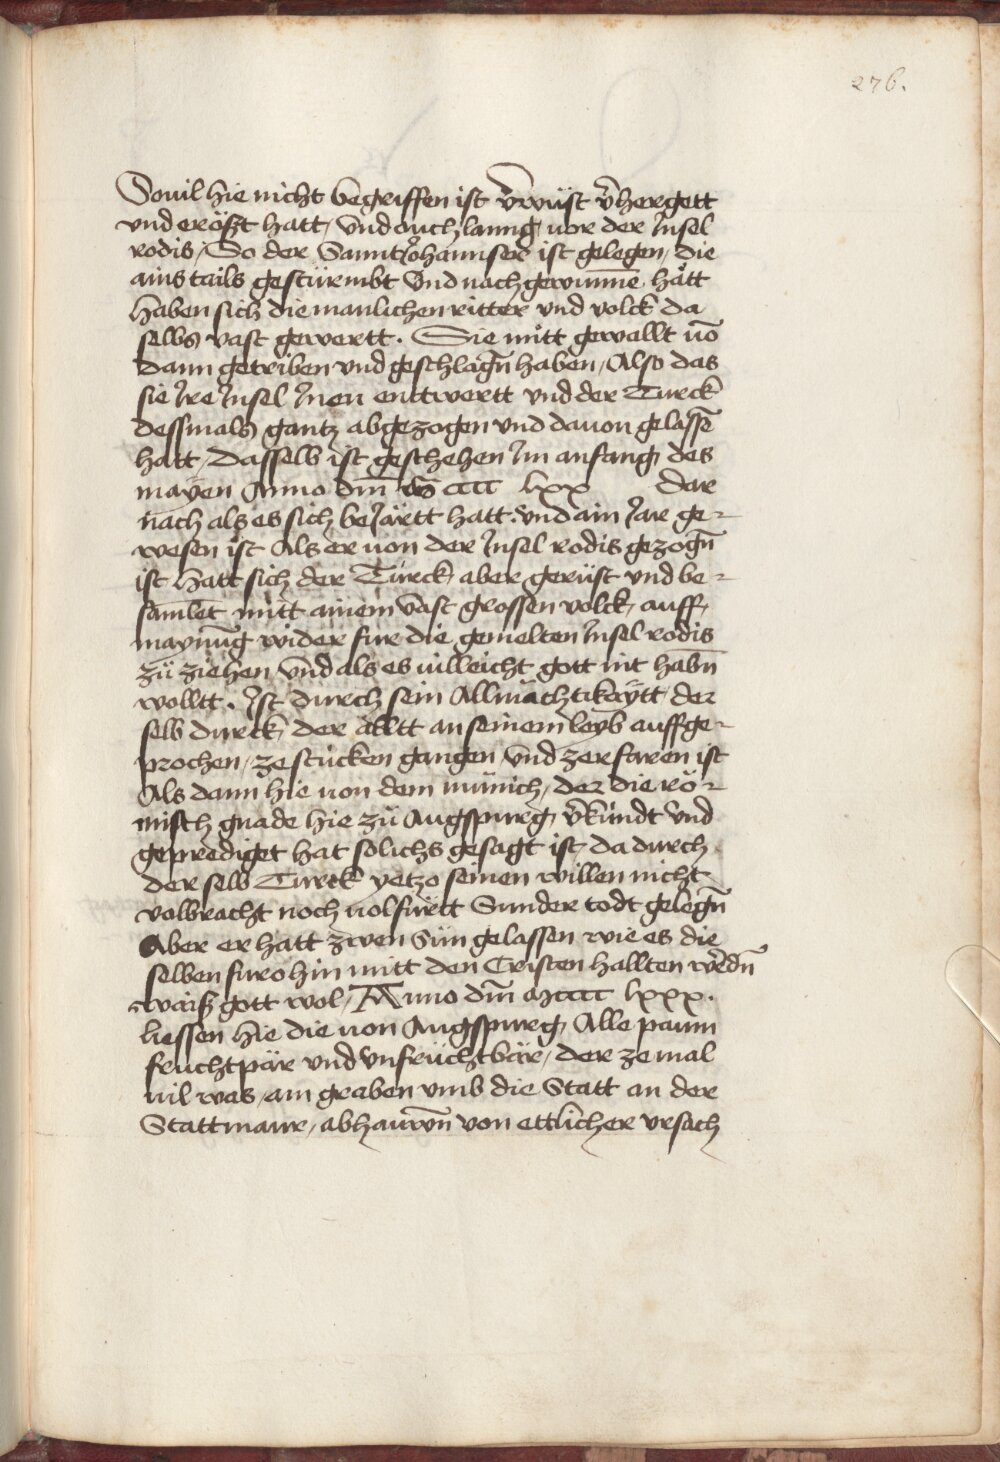 276.
Souil hie nicht begriffen ist v̄wüst v̄hergett
vnd eröszt hatt, vnd auch lanng vor der Jnsel
rodis, So der Sannt Johannser ist gelegen, die
ains tails gestürmbt vnd nach gewunnē hätt
haben sich die manlichen ritter vnd volck da
selbs vast gewertt. Sie mitt gewallt uō
dann getriben vnd geschlagn̄ haben, Also das
sie Jre Jnsel Jnen entwertt vnd der Turck
dessmals gantz abgezogen vnd dauon gelassē
hatt, Dasselb ist geschehen Jm anfang des
mayen Anno dm̄ cccc lxxx dar
nach als es sich beJärtt hatt. vnd ain Jar ge-
wesen ist Als er uon der Jnsel rodis gezogn̄
ist hatt sich der Turck aber gerüst vnd be-
samlet mitt ainem vast grossen volck, auff
maynūg wider fur die gemelten Jnsel rodis
zü ziehen vnd als es uilleicht gott nit habn̄
wolltt. Jst durch sein Allmächtikaytt der
selb durck der älltt an seinem leyb auffge-
prochen, ze stucken gangen, vnd zerfaren ist
Als dann hie uon dem münich, der die rö-
misch gnade hie zü Augspurg v̄kündt vnd
geprediget hat solichs gesagt ist da durch
der selb Turck yetzo seinen willen nicht
volbracht noch uolfürtt Sunder todt gelegn̄
Aber er hatt zwen Sün gelassen wie es die
selben furo hin mitt den Cristen hallten werdn̄
waisz gott wol, Anno dm̄ mcccc lxxx.
liessen hie die uon Augspurg Alle paum
fruchtpär vnd vnfrüchtbär, der ze mal
uil was, am graben vmb die Statt an der
Stattmaur, abhauwn̄ von ettlicher vrsach